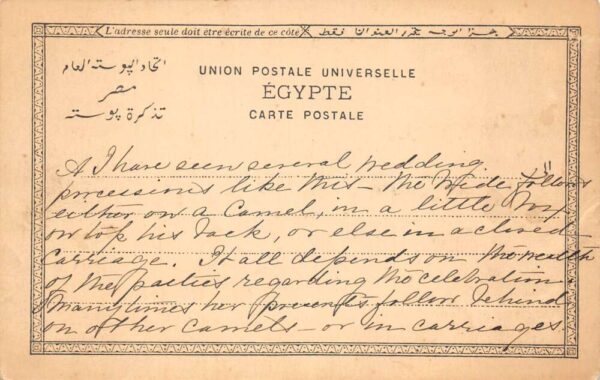 L'adresse seule doit être écrite de ce côté
هذا الوجه يحرر العنوان فقط
اتحاد البوسته العام
مصر
تذكرة بوسته
UNION POSTALE UNIVERSELLE
ÉGYPTE
CARTE POSTALE
I have seen several wedding
processions like this - the bride follows
either on a Camel, in a little
on top his back, or else in a closed
carriage. It all depends on the wealth
of the parties regarding the celebration.
Many times her presents follow behind
on other camels - or in carriages.